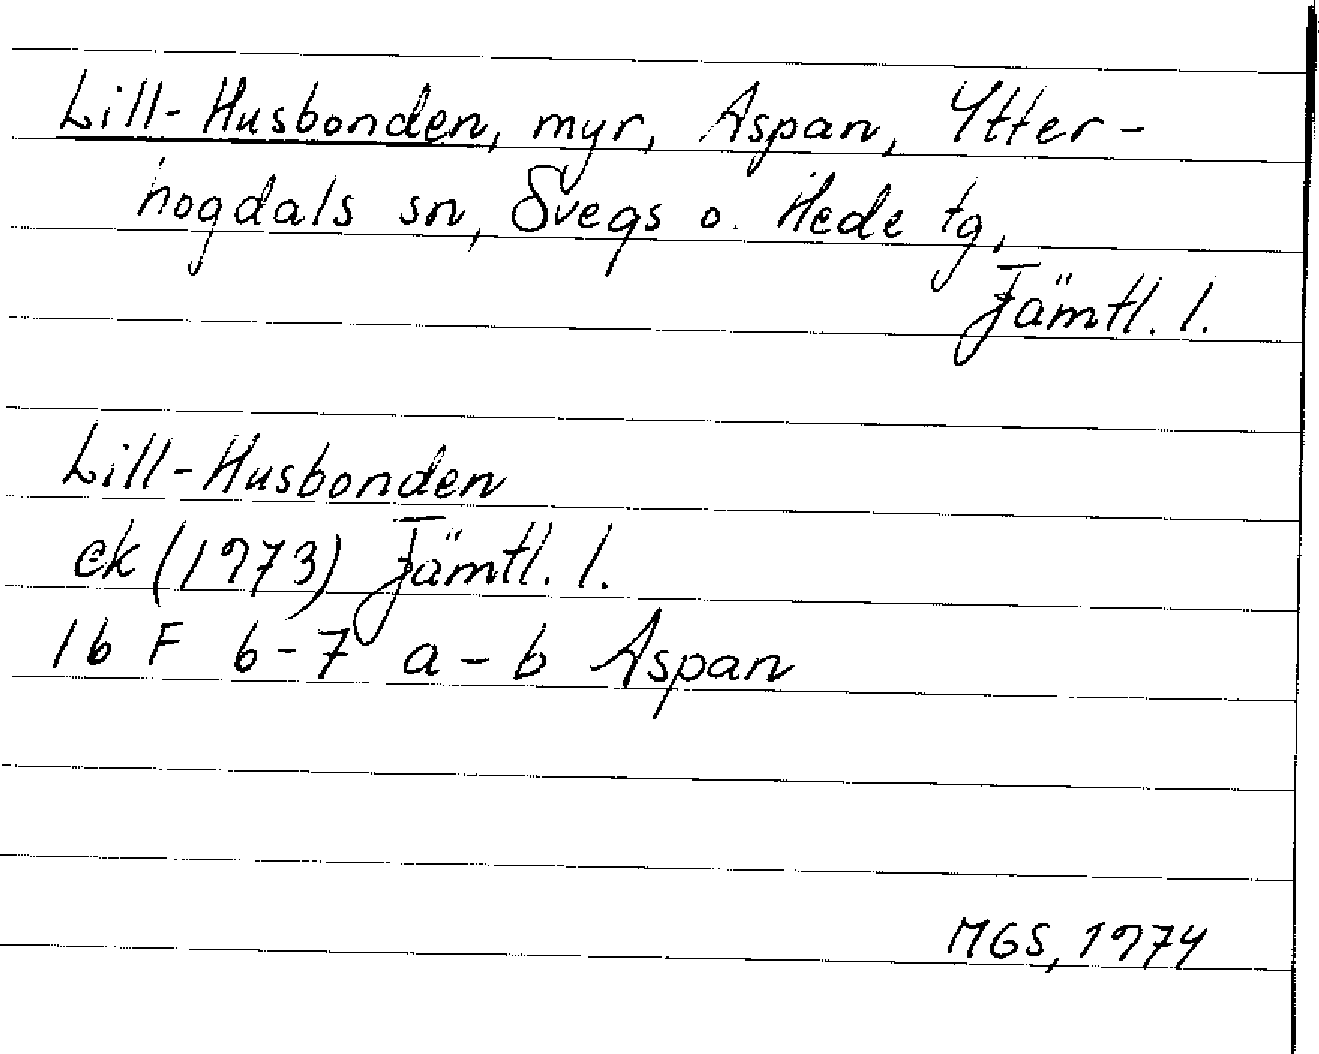 Lill-Husbonden, myr, Aspan, Ytter-
hogdals sn, Svegs o. Hede tg,
Jämtl. l.
Lill-Husbonden
ek (1973) Jämtl. l.
16 F 6-7 a-b Aspan
MGS, 1974